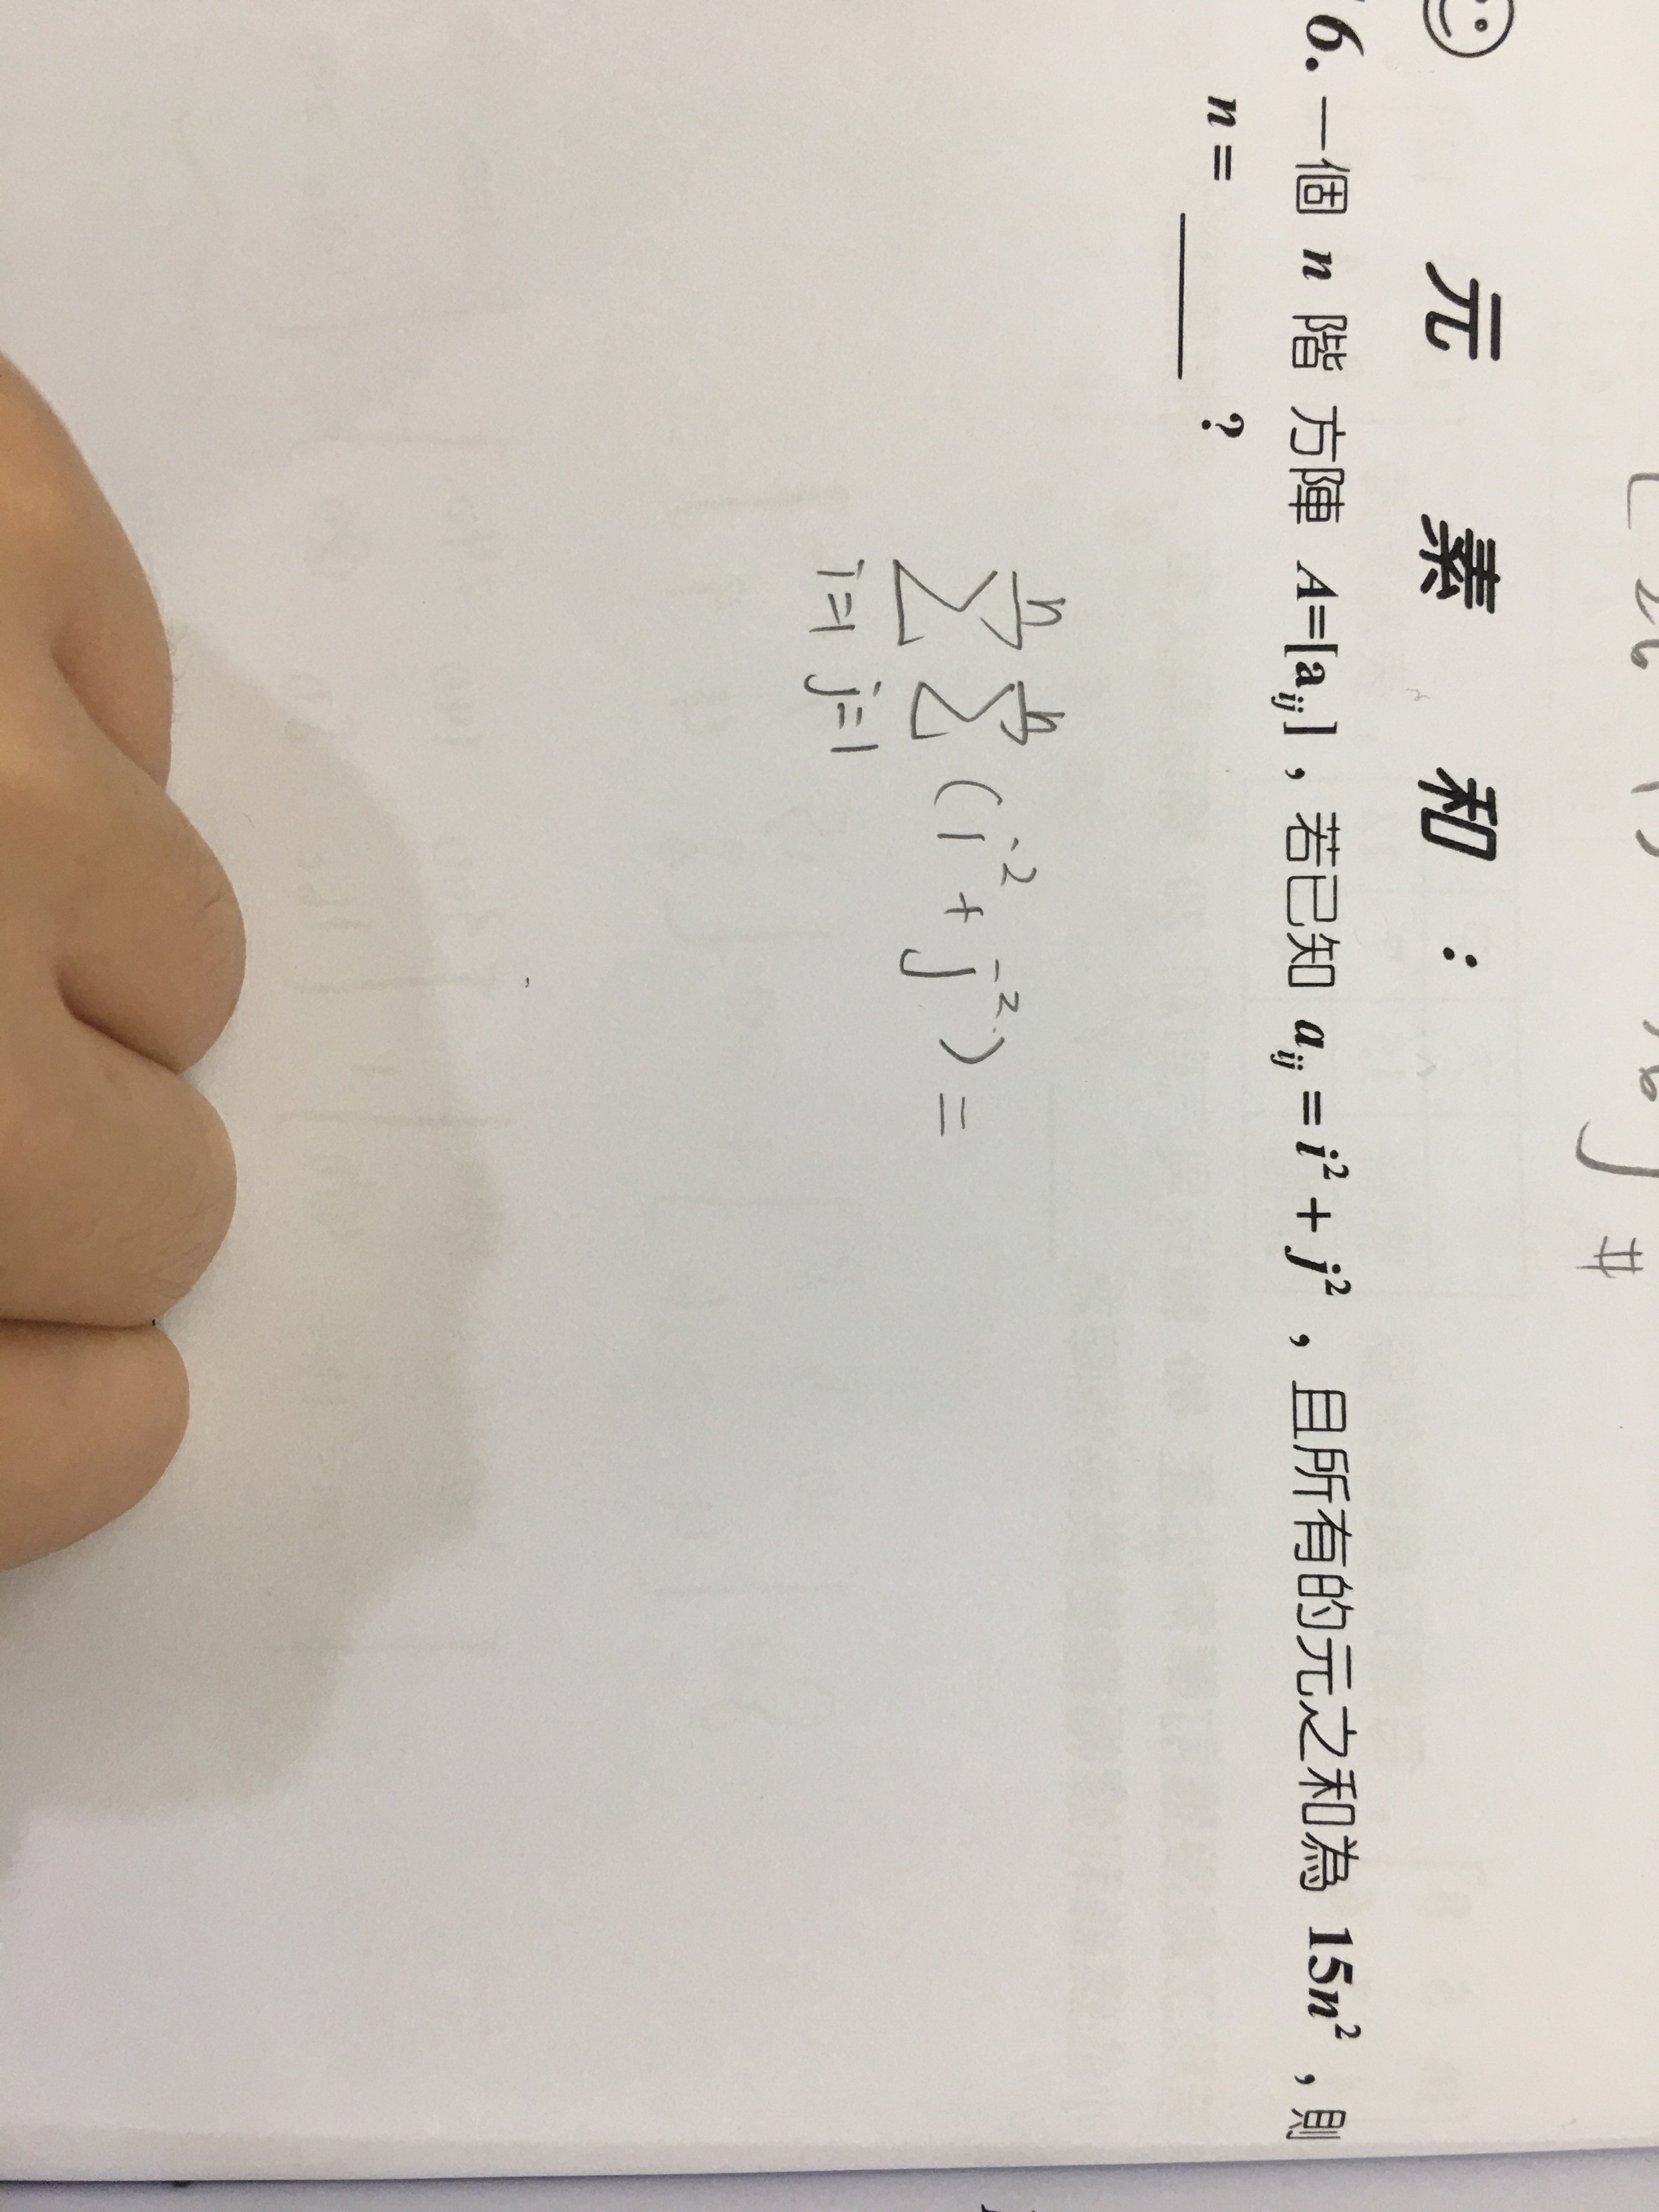 元素和：
6. 一個 n 階 方陣 A=[aij]，若已知 aij = i² + j²，且所有的元之和為 15n²，則
n = ______ ?
n n
Σ Σ (i² + j²) =
i=1 j=1